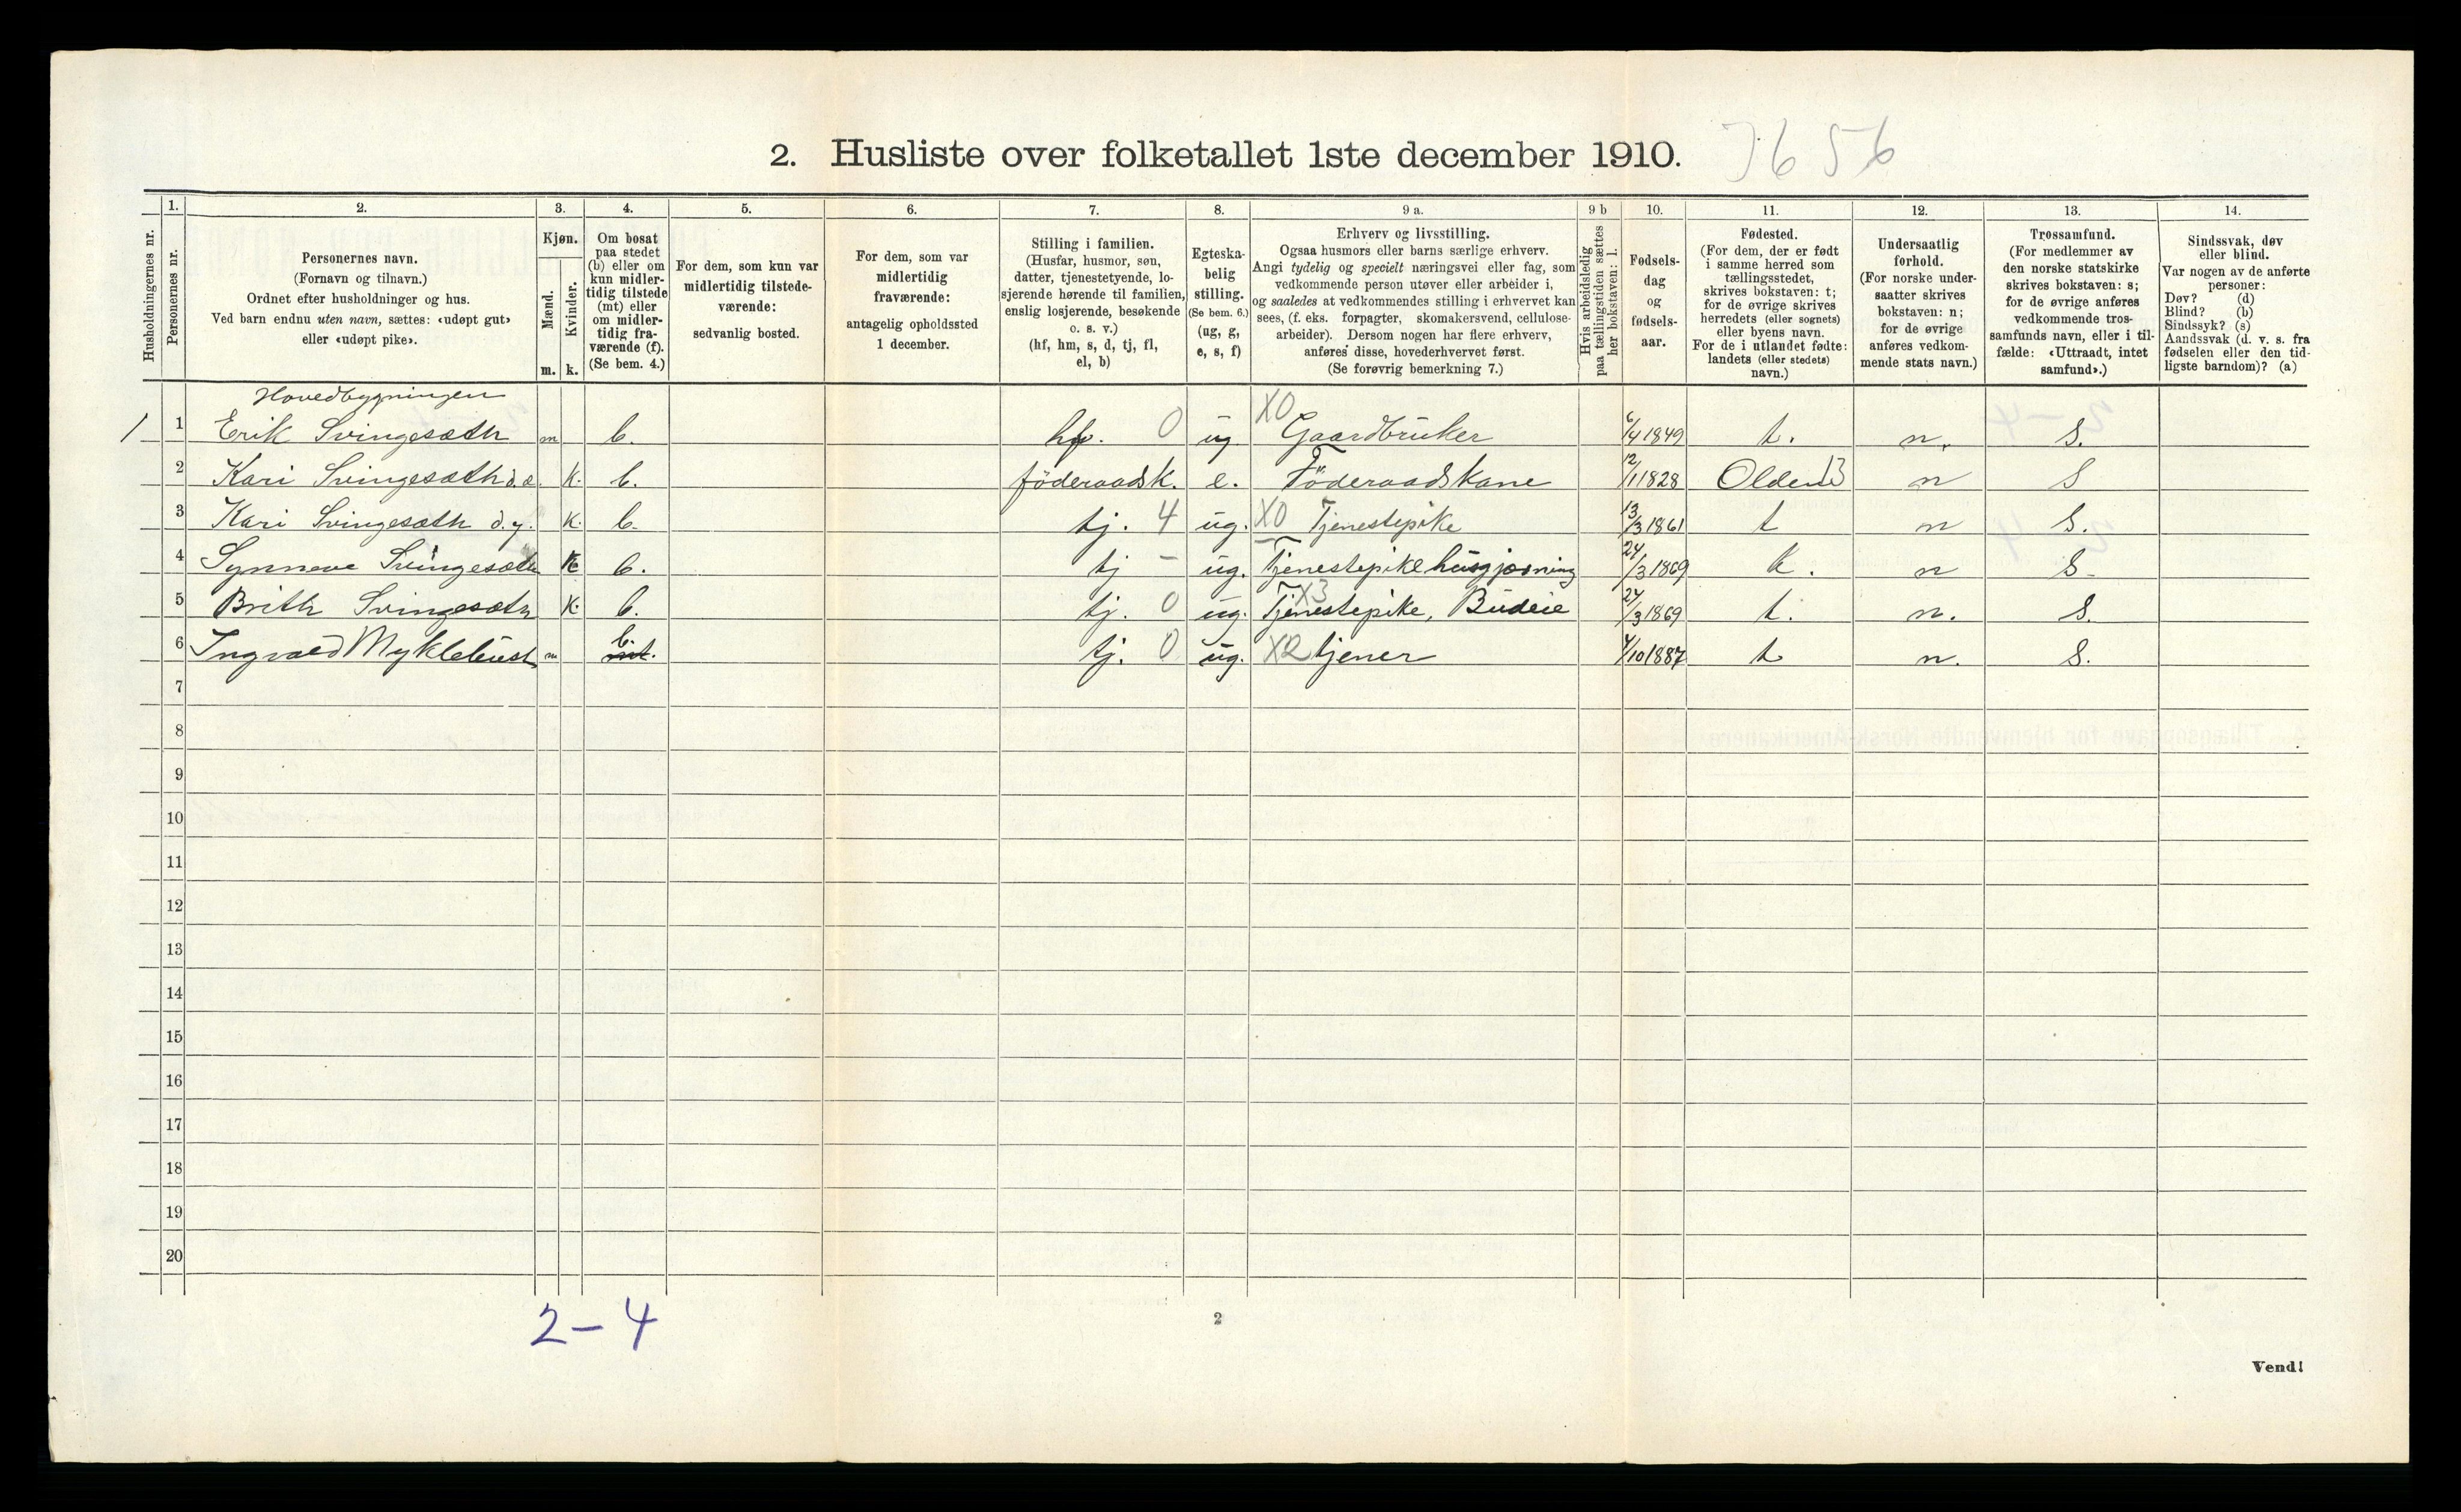 2. Husliste over folketallet 1ste december 1910. 7656
Husholdningernes nr.
1. Personernes nr.
2. Personernes navn.
(Fornavn og tilnavn.)
Ordnet efter husholdninger og hus.
Ved barn endnu uten navn, sættes: «udøpt gut»
eller «udøpt pike».
3. Kjøn.
Mænd. m.
Kvinder. k.
4. Om bosat
paa stedet
(b) eller om
kun midler-
tidig tilstede
(mt) eller
om midler-
tidig fra-
værende (f).
(Se bem. 4.)
5. For dem, som kun var
midlertidig tilstede-
værende:
sedvanlig bosted.
6. For dem, som var
midlertidig
fraværende:
antagelig opholdssted
1 december.
7. Stilling i familien.
(Husfar, husmor, søn,
datter, tjenestetyende, lo-
sjerende hørende til familien,
enslig losjerende, besøkende
o. s. v.)
(hf, hm, s, d, tj, fl,
el, b)
8. Egteska-
belig
stilling.
(Se bem. 6.)
(ug, g,
e, s, f)
9 a. Erhverv og livsstilling.
Ogsaa husmors eller barns særlige erhverv.
Angi tydelig og specielt næringsvei eller fag, som
vedkommende person utøver eller arbeider i,
og saaledes at vedkommendes stilling i erhvervet kan
sees, (f. eks. forpagter, skomakersvend, cellulose-
arbeider). Dersom nogen har flere erhverv,
anføres disse, hovederhvervet først.
(Se forøvrig bemerkning 7.)
9 b Hvis arbeidsledig
paa tællingstiden sættes
her bokstaven: l.
10. Fødsels-
dag
og
fødsels-
aar.
11. Fødested.
(For dem, der er født
i samme herred som
tællingsstedet,
skrives bokstaven: t;
for de øvrige skrives
herredets (eller sognets)
eller byens navn.
For de i utlandet fødte:
landets (eller stedets)
navn.)
12. Undersaatlig
forhold.
(For norske under-
saatter skrives
bokstaven: n;
for de øvrige
anføres vedkom-
mende stats navn.)
13. Trossamfund.
(For medlemmer av
den norske statskirke
skrives bokstaven: s;
for de øvrige anføres
vedkommende tros-
samfunds navn, eller i til-
fælde: «Uttraadt, intet
samfund».)
14. Sindssvak, døv
eller blind.
Var nogen av de anførte
personer:
Døv? (d)
Blind? (b)
Sindssyk? (s)
Aandssvak (d. v. s. fra
fødselen eller den tid-
ligste barndom)? (a)
Hovedbygningen
1 1 Erik Svingesæth m b. hf. 0 ug X0 Gaardbruker 6/4 1849 t. n. S.
2 Kari Svingesæth d.æ. k. b. föderaadsk. e. Föderaadskone 12/1 1828 Olden 13 n S
3 Kari Svingesæth d.y. k. b. tj. 4 ug. X0 Tjenestepike 13/3 1861 t n S.
4 Synneve Svingesæth k b. tj - ug. Tjenestepike husgjerning 24/3 1869 t. n S.
5 Brith Svingesæth k. b. tj. 0 ug. X3 Tjenestepike, Budeie 24/3 1869 t. n. S.
6 Ingvald Myklebust m b. mt. tj. 0 ug. X2 tjener 4/10 1887 t n. S.
7
8
9
10
11
12
13
14
15
16
17
18
19
20
2-4
2
Vend!